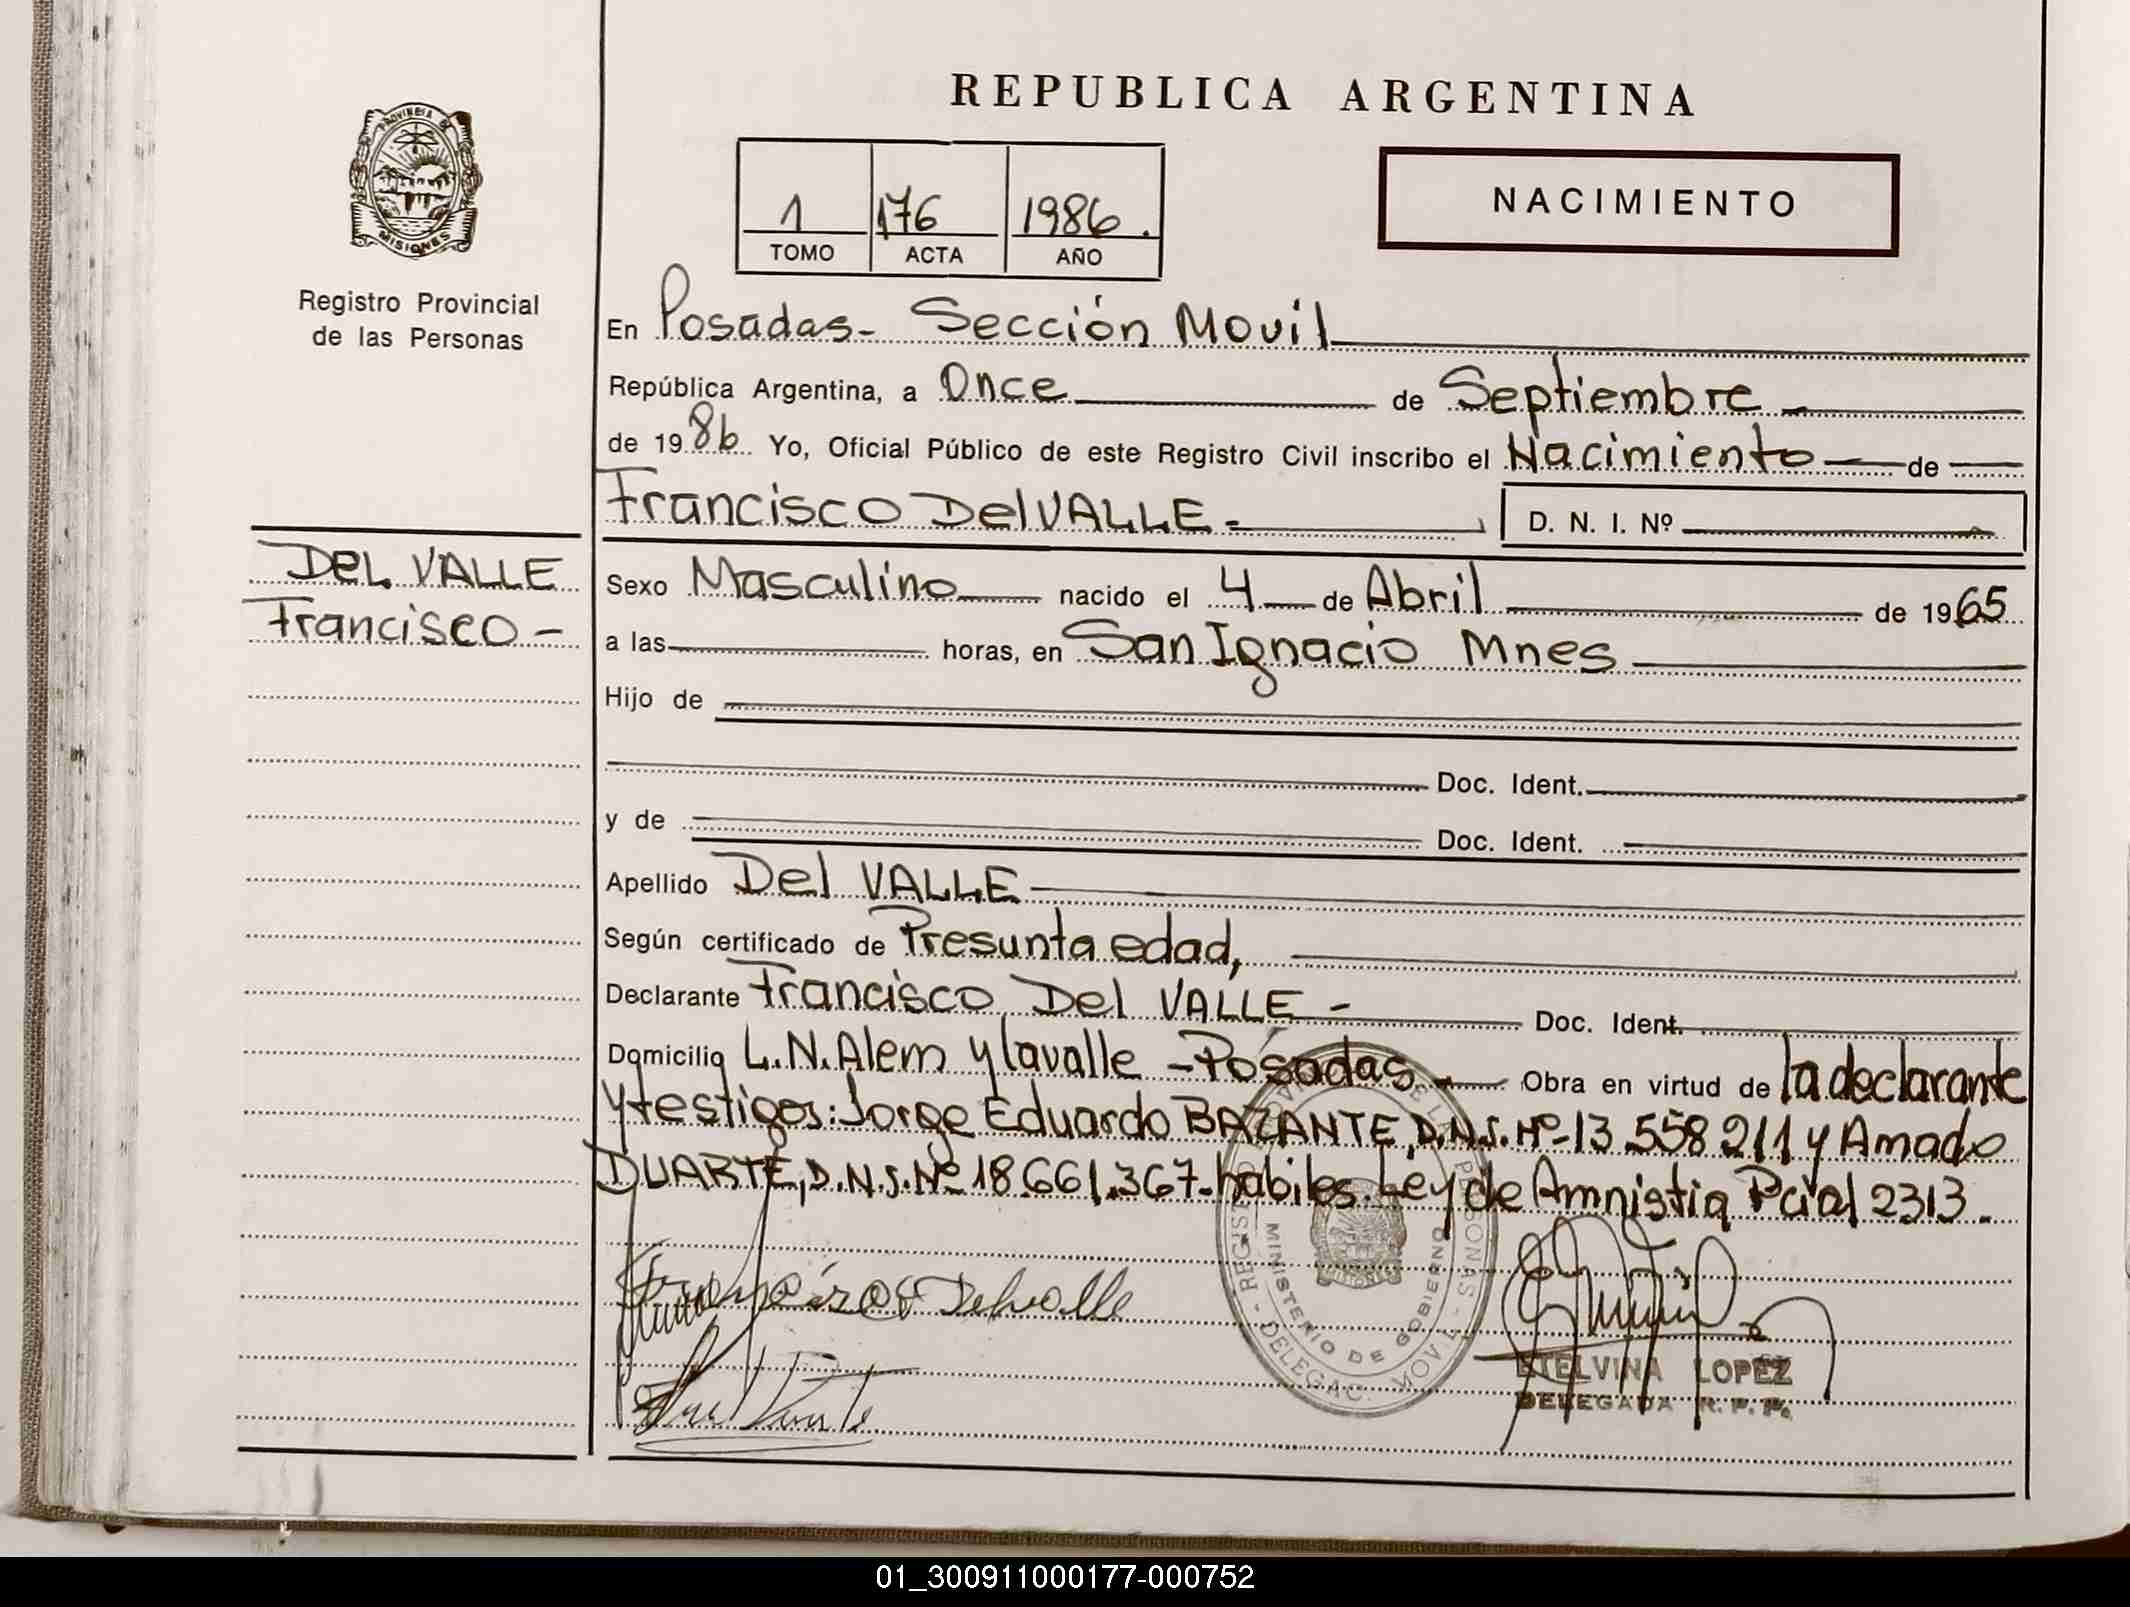 REPUBLICA ARGENTINA
PROVINCIA DE
MISIONES
1 176 1986.
TOMO ACTA AÑO
NACIMIENTO
Registro Provincial
de las Personas
En Posadas- Sección Movil
República Argentina, a Once de Septiembre
de 1986 Yo, Oficial Público de este Registro Civil inscribo el Nacimiento de
Francisco Del VALLE - D. N. I. Nº
DeL VALLE
Francisco -
Sexo Masculino nacido el 4 de Abril de 1965
a las horas, en San Ignacio Mnes
Hijo de
Doc. Ident.
y de Doc. Ident.
Apellido Del VALLE
Según certificado de Presunta edad,
Declarante Francisco Del VALLE - Doc. Ident.
Domicilio L.N.Alem y lavalle - Posadas Obra en virtud de la declarante
y testigos: Jorge Eduardo BAZANTE, D.N.I. Nº 13.558 211 y Amado
DUARTE, D.N.I. Nº 18.661.367- habiles. Ley de Amnistia Pcial 2313.
Delvalle
MINISTERIO DE GOBIERNO
DELEGAC. MOVIL
ETELVINA LOPEZ
DELEGADA R. P. P.
01_300911000177-000752